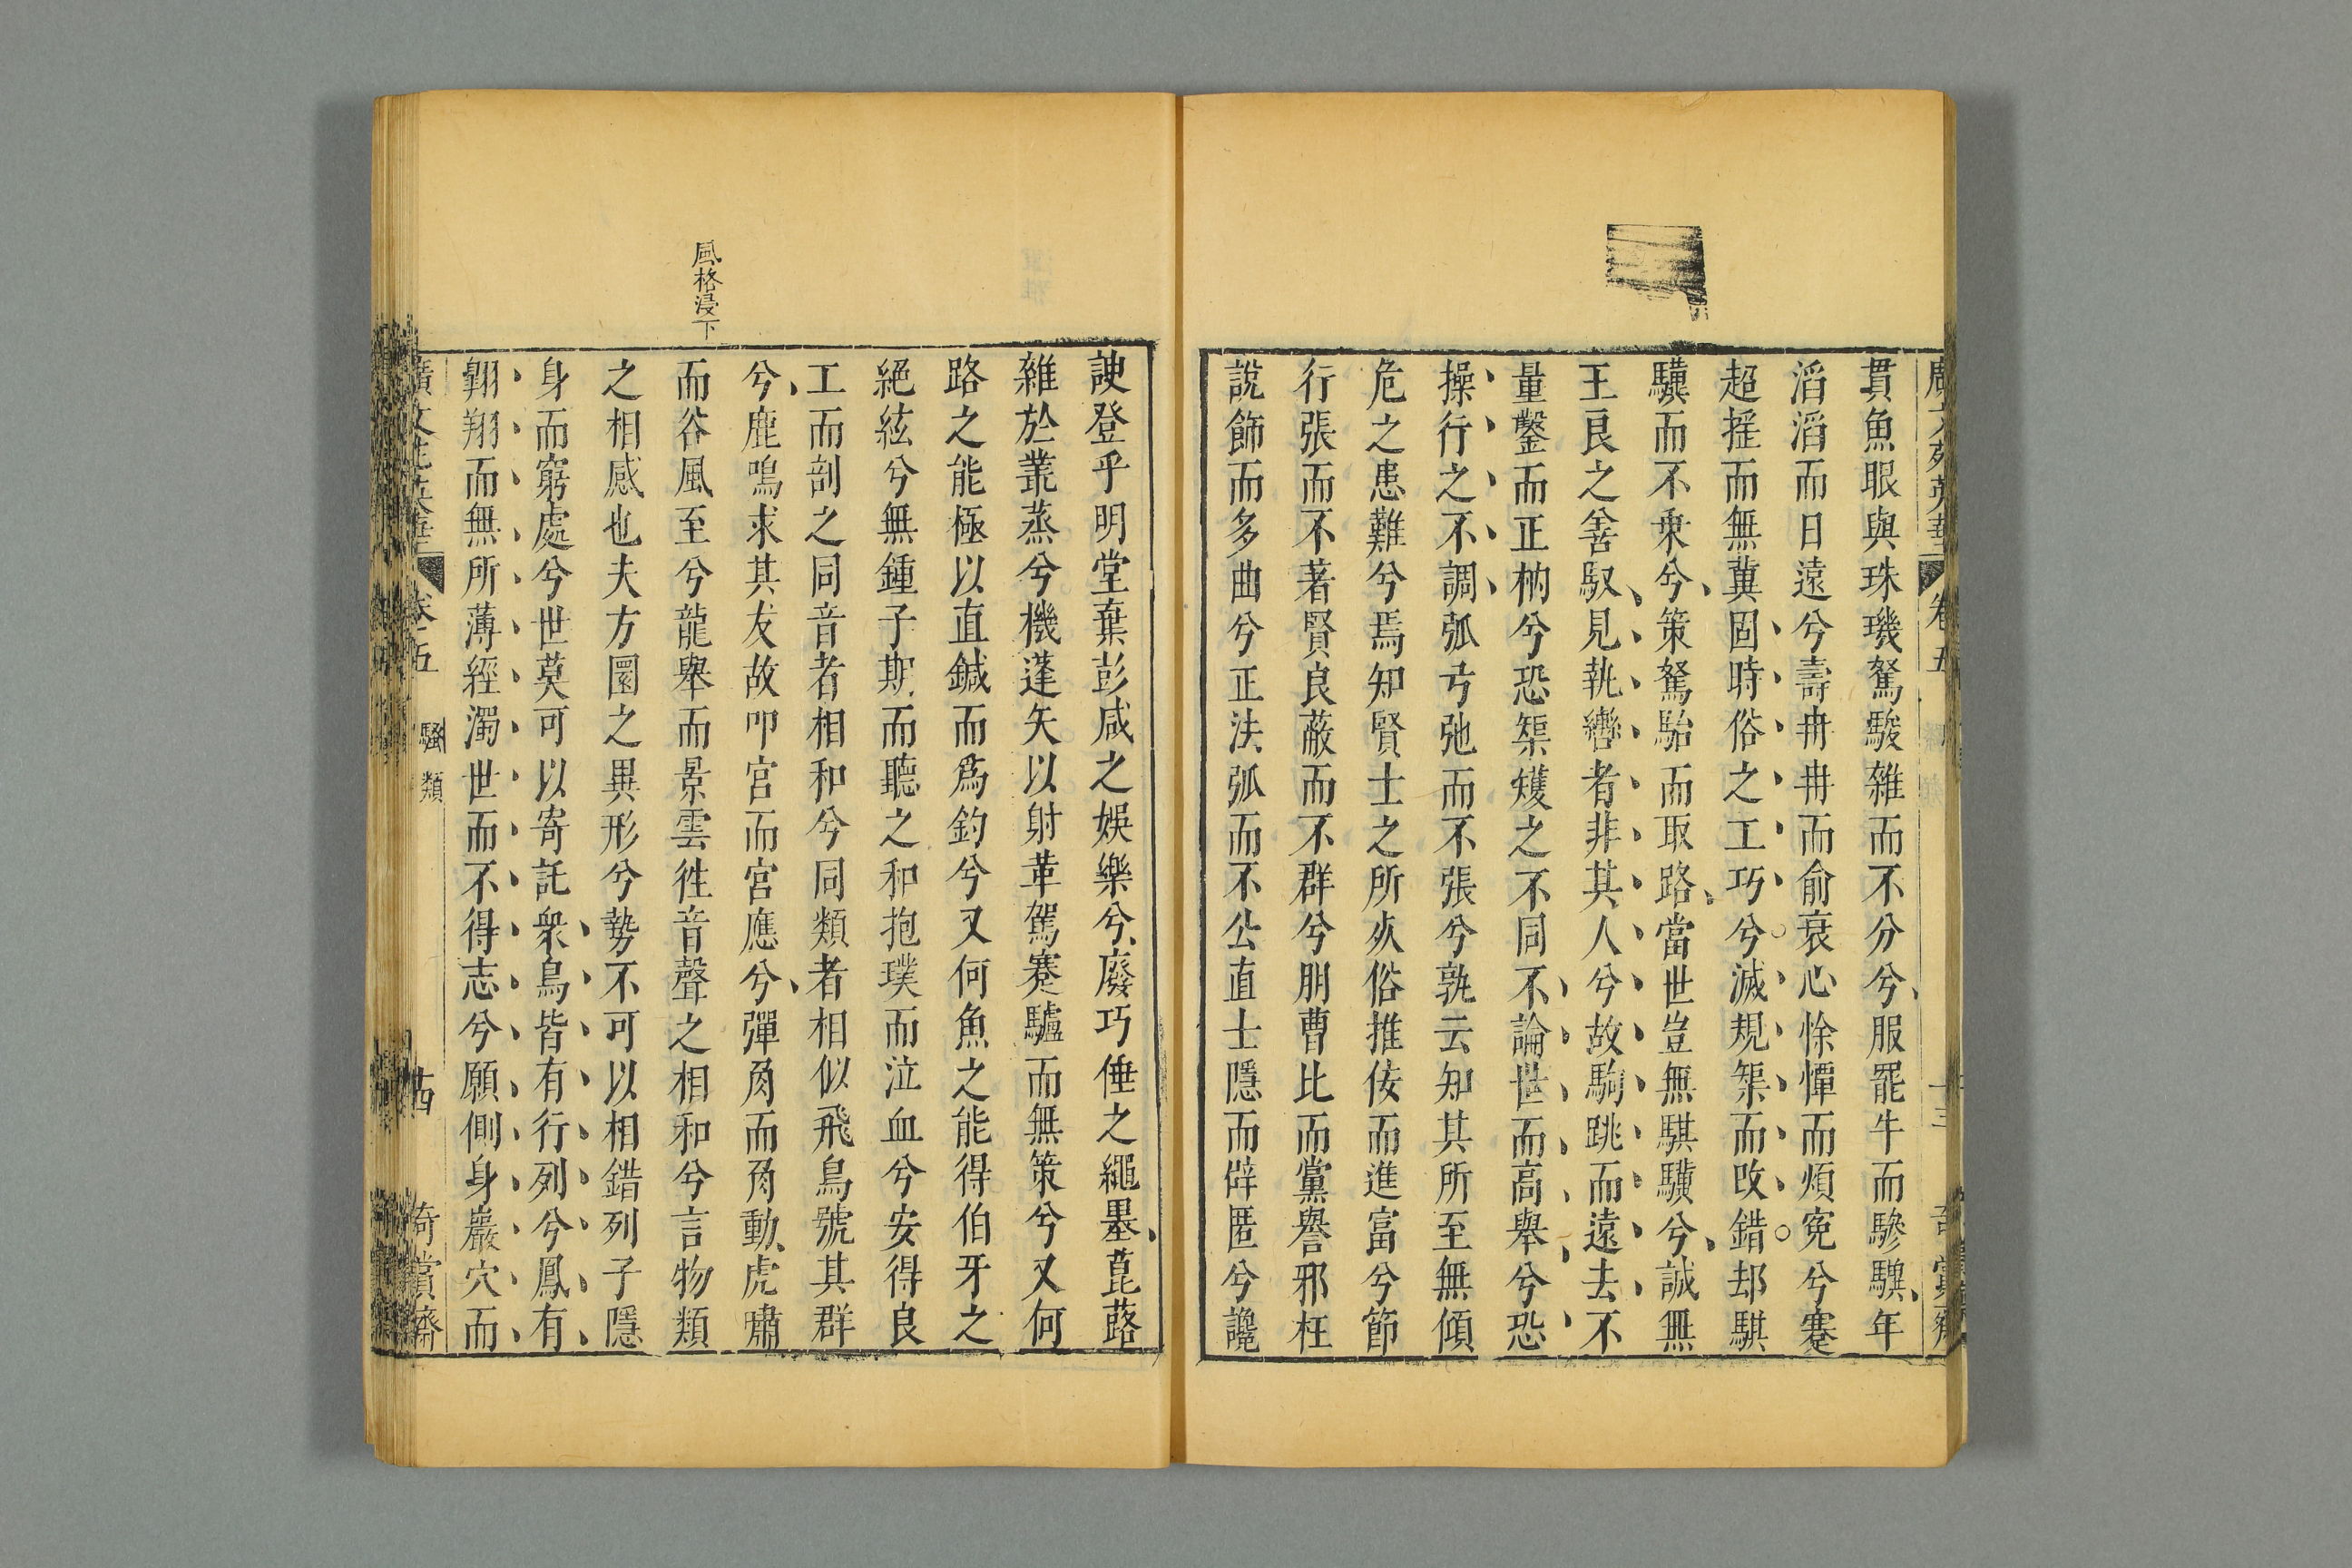 貫魚眼與珠璣駑駿雜而不分兮服罷牛而驂驥年
滔滔而日遠兮壽冉冉而俞衰心悇憛而煩冤兮蹇
超摇而無冀固時俗之工巧兮滅規榘而改錯却騏
驥而不乗兮策駑駘而取路當世豈無騏驥兮誠無
王良之善馭見執轡者非其人兮故駒跳而遠去不
量鑿而正枘兮恐榘矱之不同不論世而高舉兮恐
操行之不調弧弓弛而不張兮孰云知其所至無傾
危之患難兮焉知賢士之所死俗推佞而進富兮節
行張而不著賢良蔽而不群兮朋曹比而黨譽邪枉
說飾而多曲兮正法弧而不公直士隱而辟匿兮讒
諛登乎明堂棄彭咸之娛樂兮廢巧倕之繩墨菎蕗
雜於䕸蒸兮機蓬矢以射革駕蹇驢而無策兮又何
路之能極以直鍼而爲釣兮又何魚之能得伯牙之
絕絃兮無鍾子期而聽之和抱璞而泣血兮安得良
工而剖之同音者相和兮同類者相似飛鳥號其群
兮鹿鳴求其友故叩宮而宮應兮彈角而角動虎嘯
而谷風至兮龍舉而景雲徃音聲之相和兮言物類
之相感也夫方圜之異形兮勢不可以相錯列子隱
身而窮處兮世莫可以寄託衆鳥皆有行列兮鳳有
翱翔而無所薄經濁世而不得志兮願側身巖穴而
風格浸下
廣文苑英華 卷五 騷類 十四 奇賞齋